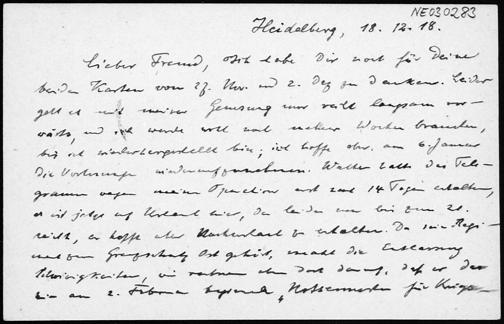 NE030283
Heidelberg, 18. 12. 18.
Lieber Freund, ich habe Dir noch für Deine
beiden Karten vom 27. Nov. und 2. Dez zu danken. Leider
geht es mit meiner Genesung nur recht langsam vor-
wärts, und ich werde wohl noch mehrere Wochen brauchen,
bis ich wiederhergestellt bin; ich hoffe aber, am 6. Januar
die Vorlesungen wiederaufzunehmen. Walter hatte das Tele-
gramm wegen meiner Operation erst nach 14 Tagen erhalten,
er ist jetzt auf Urlaub hier, der leider nur bis zum 21.
reicht, er hofft aber Nachurlaub zu erhalten. Da sein Regi-
ment zum Grenzschutz Ost gehört, macht die Entlassung
Schwierigkeiten, wir rechnen aber doch darauf, daß er das
am 2. Februar für Kriegs-